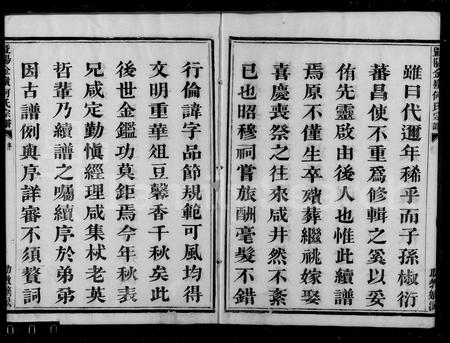 雖曰代邇年稀乎而子孫椒衍
蕃昌使不重爲修輯之奚以妥
侑先靈啟由後人也惟此續譜
焉原不僅生卒殯葬繼祧嫁娶
喜慶喪祭之往來咸井然不紊
已也昭穆祠嘗旅酬毫髮不錯
行倫諱字品節規範可風均得
文明重華俎豆馨香千秋矣此
後世金鑑功莫鉅焉今年秋表
兄咸定勤慎經理咸集杖老英
哲輩乃續譜之囑續序於弟弟
因古譜例與序詳審不須贅詞